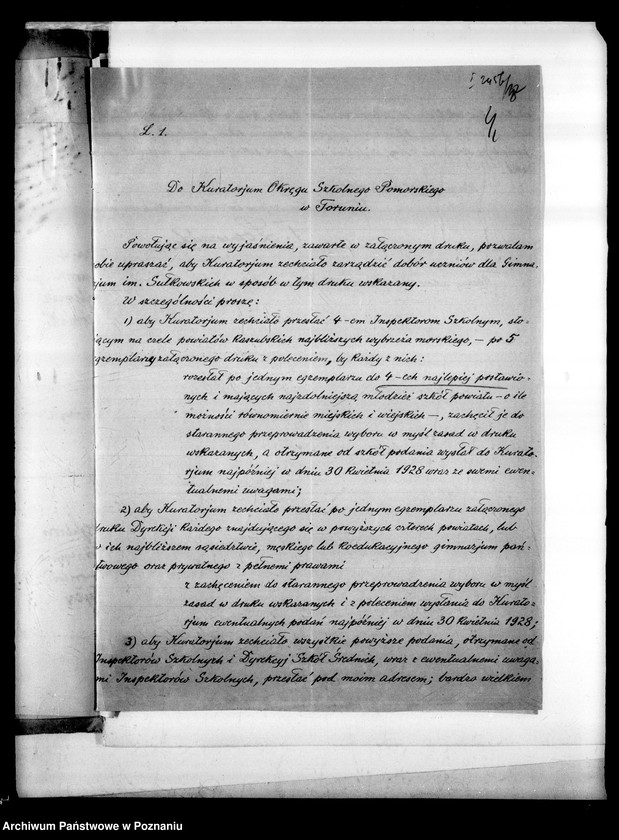 L. 1.
Do Kuratorjum Okręgu Szkolnego Pomorskiego
w Toruniu.
Powołując się na wyjaśnienia, zawarte w załączonym druku, pozwalam
obie upraszać, aby Kuratorjum zechciało zarządzić dobór uczniów dla Gimna-
jum im. Sułkowskich w sposób w tym druku wskazany.
W szczególności proszę:
1) aby Kuratorjum zechciało przesłać 4-em Inspektorom Szkolnym, sto-
ącym na czele powiatów kaszubskich najbliższych wybrzeża morskiego, — po 5
egzemplarzy załączonego druku z poleceniem, by każdy z nich:
rozesłał po jednym egzemplarzu do 4-ech najlepiej postawio-
nych i mających najzdolniejszą młodzież szkół powiatu — o ile
możności równomiernie miejskich i wiejskich —, zachęcił je do
starannego przeprowadzenia wyboru w myśl zasad w druku
wskazanych, a otrzymane od szkół podania wysłał do Kurato-
rjum najpóźniej w dniu 30 kwietnia 1928 wraz ze swemi ewen-
tualnemi uwagami;
2) aby Kuratorjum zechciało przesłać po jednym egzemplarzu załączonego
druku Dyrekcji każdego znajdującego się w powyższych czterech powiatach, lub
w ich najbliższem sąsiedztwie, męskiego lub koedukacyjnego gimnazjum pań-
twowego oraz prywatnego z pełnemi prawami
z zachęceniem do starannego przeprowadzenia wyboru w myśl
zasad w druku wskazanych i z poleceniem wysłania do Kurato-
rjum ewentualnych podań najpóźniej w dniu 30 kwietnia 1928;
3) aby Kuratorjum zechciało wszystkie powyższe podania, otrzymane od
Inspektorów Szkolnych i Dyrekcyj Szkół Średnich, wraz z ewentualnemi uwaga-
mi Inspektorów Szkolnych, przesłać pod moim adresem; bardzo wielkiem
Archiwum Państwowe w Poznaniu